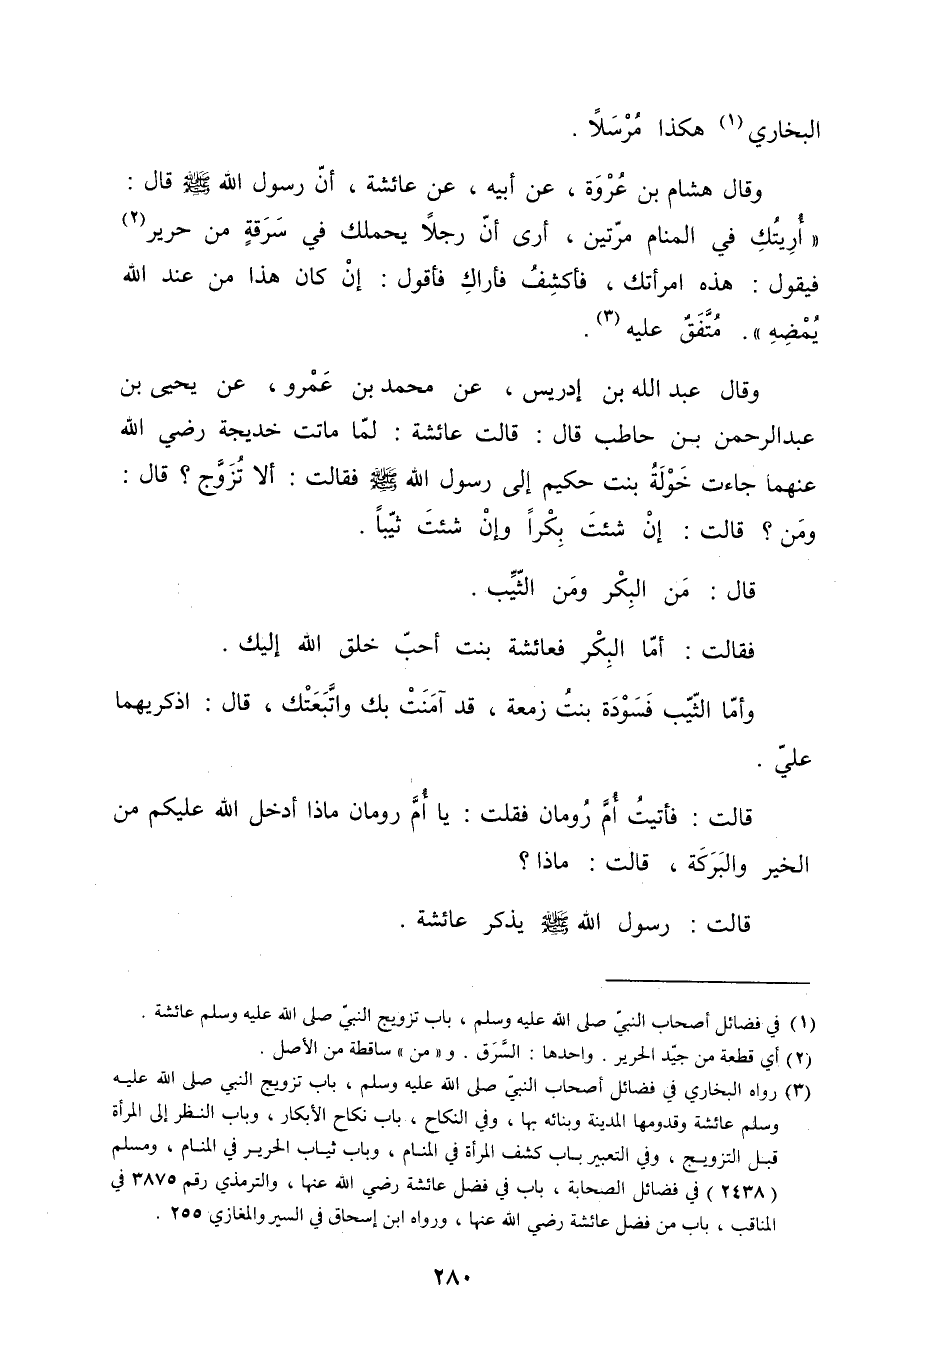 البخاري (١) هكذا مُرْسَلاً .
وقال هشام بن عُرْوَة ، عن أبيه ، عن عائشة ، أنّ رسول الله ﷺ قال :
« أُرِيتُكِ في المنام مرّتين ، أرى أنّ رجلاً يحملك في سَرَقةٍ من حرير (٢)
فيقول : هذه امرأتك ، فأكشِفُ فأراكِ فأقول : إنْ كان هذا من عند الله
يُمْضِهِ » . مُتَّفَقٌ عليه (٣) .
وقال عبد الله بن إدريس ، عن محمد بن عَمْرو ، عن يحيى بن
عبدالرحمن بن حاطب قال : قالت عائشة : لمّا ماتت خديجة رضي الله
عنهما جاءت خَوْلَةُ بنت حكيم إلى رسول الله ﷺ فقالت : ألا تُزَوَّج ؟ قال :
ومَن ؟ قالت : إنْ شئتَ بِكْراً وإنْ شئتَ ثيّباً .
قال : مَن البِكْر ومَن الثّيِّب .
فقالت : أمّا البِكْر فعائشة بنت أحبّ خلق الله إليك .
وأمّا الثّيّب فَسَوْدَة بنتُ زمعة ، قد آمَنَتْ بك واتَّبَعَتْك ، قال : اذكريهما
عليّ .
قالت : فأتيتُ أُمَّ رُومان فقلت : يا أُمَّ رومان ماذا أدخل الله عليكم من
الخير والبَرَكَة ، قالت : ماذا ؟
قالت : رسول الله ﷺ يذكر عائشة .
(١) في فضائل أصحاب النبيّ صلى الله عليه وسلم ، باب تزويج النبيّ صلى الله عليه وسلم عائشة .
(٢) أي قطعة من جيّد الحرير . واحدها : السَّرَق . و « من » ساقطة من الأصل .
(٣) رواه البخاري في فضائل أصحاب النبيّ صلى الله عليه وسلم ، باب تزويج النبي صلى الله عليه
وسلم عائشة وقدومها المدينة وبنائه بها ، وفي النكاح ، باب نكاح الأبكار ، وباب النظر إلى المرأة
قبل التزويج ، وفي التعبير باب كشف المرأة في المنام ، وباب ثياب الحرير في المنام ، ومسلم
( ٢٤٣٨ ) في فضائل الصحابة ، باب في فضل عائشة رضي الله عنها ، والترمذي رقم ٣٨٧٥ في
المناقب ، باب من فضل عائشة رضي الله عنها ، ورواه ابن إسحاق في السير والمغازي ٢٥٥ .
٢٨٠